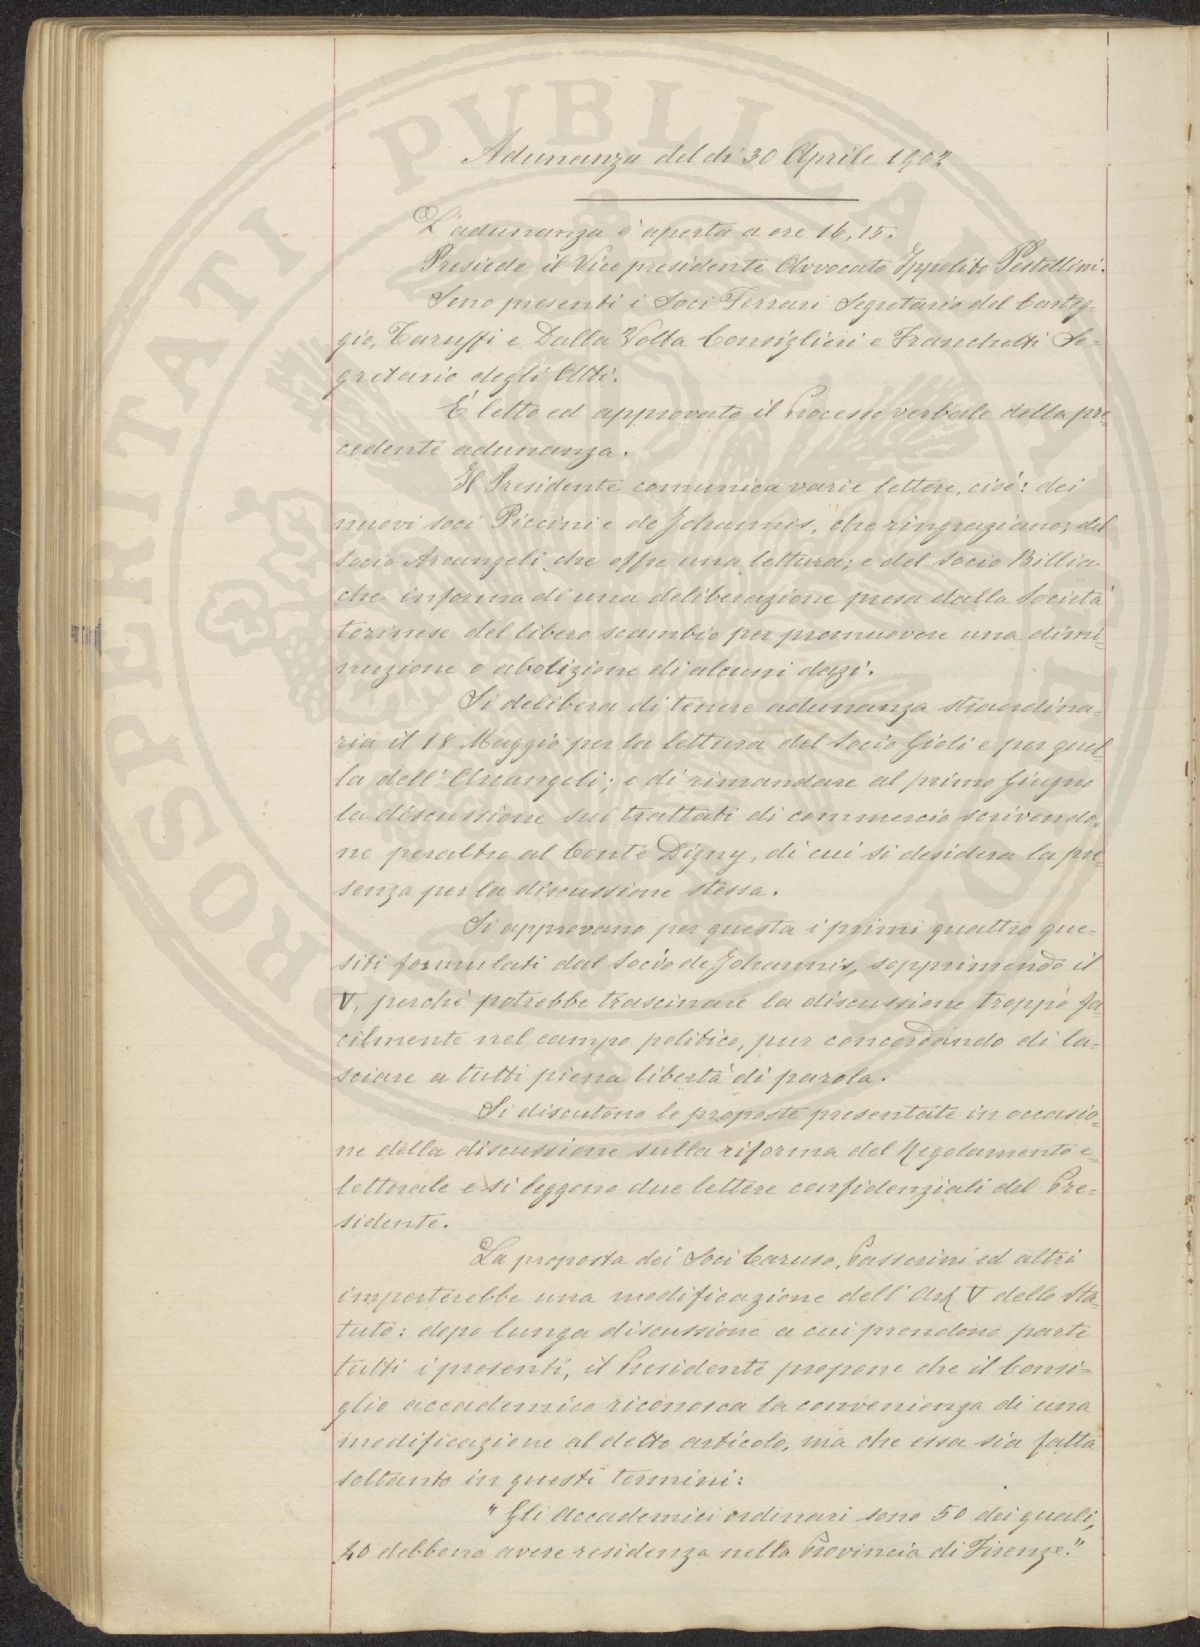 PROSPERITATI PVBLICAE AVGENDAE
Adunanza del dì 30 Aprile 1902
L'adunanza è aperta a ore 16,15.
Presiede il Vice presidente Avvocato Ippolito Pestellini.
Sono presenti i Soci Ferrari Segretario del Carteg-
gio, Taruffi e Dalla Volta Consiglieri e Franchetti Se-
gretario degli Atti.
È letto ed approvato il Processo verbale della pre-
cedente adunanza.
Il Presidente comunica varie lettere, cioè: dei
nuovi soci Piccini e de Johannis, che ringraziano; del
socio Arcangeli che offre una lettura; e del socio Billia
che informa di una deliberazione presa dalla Società
torinese del libero scambio per promuovere una dimi-
nuzione o abolizione di alcuni dazi.
Si delibera di tenere adunanza straordina-
ria il 18 Maggio per la lettura del Socio Gioli e per quel-
la dell'Arcangeli; e di rimandare al primo Giugno
la discussione sui trattati di commercio scrivendo-
ne peraltro al Conte Digny, di cui si desidera la pre-
senza per la discussione stessa.
Si approvano per questa i primi quattro que-
siti formulati dal Socio de Johannis, sopprimendo il
V, perchè potrebbe trascinare la discussione troppo fa-
cilmente nel campo politico, pur concordando di la-
sciare a tutti piena libertà di parola.
Si discutono le proposte presentate in occasio-
ne della discussione sulla riforma del Regolamento e-
lettorale e si leggono due lettere confidenziali del Pre-
sidente.
La proposta dei Soci Caruso, Passerini ed altri
importerebbe una modificazione dell'Art V dello Sta-
tuto: dopo lunga discussione a cui prendono parte
tutti i presenti, il Presidente propone che il Consi-
glio accademico riconosca la convenienza di una
modificazione al detto articolo, ma che essa sia fatta
soltanto in questi termini:
"Gli Accademici ordinari sono 50 dei quali,
40 debbono avere residenza nella Provincia di Firenze."